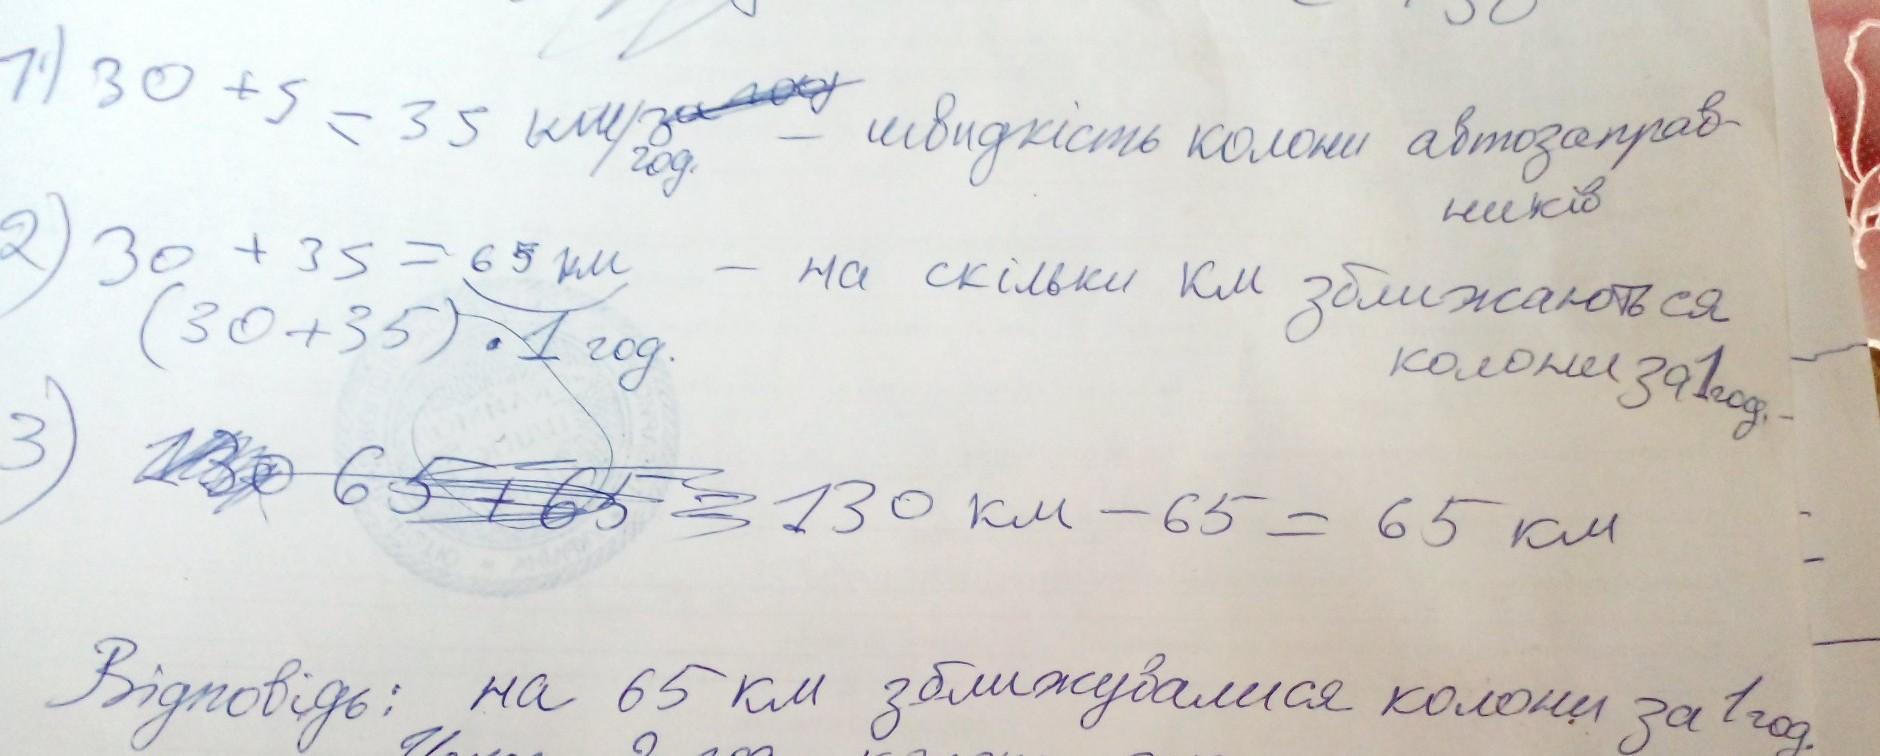 1) 30 + 5 = 35 км/год. – швидкість колони автозаправ-
ників
2) 30 + 35 = 65 км – на скільки км зближаються
(30+35) · 1 год. колони за 1 год.
3) 65 + 65 = 130 км – 65 = 65 км
Відповідь: на 65 км зближувалися колони за 1 год.